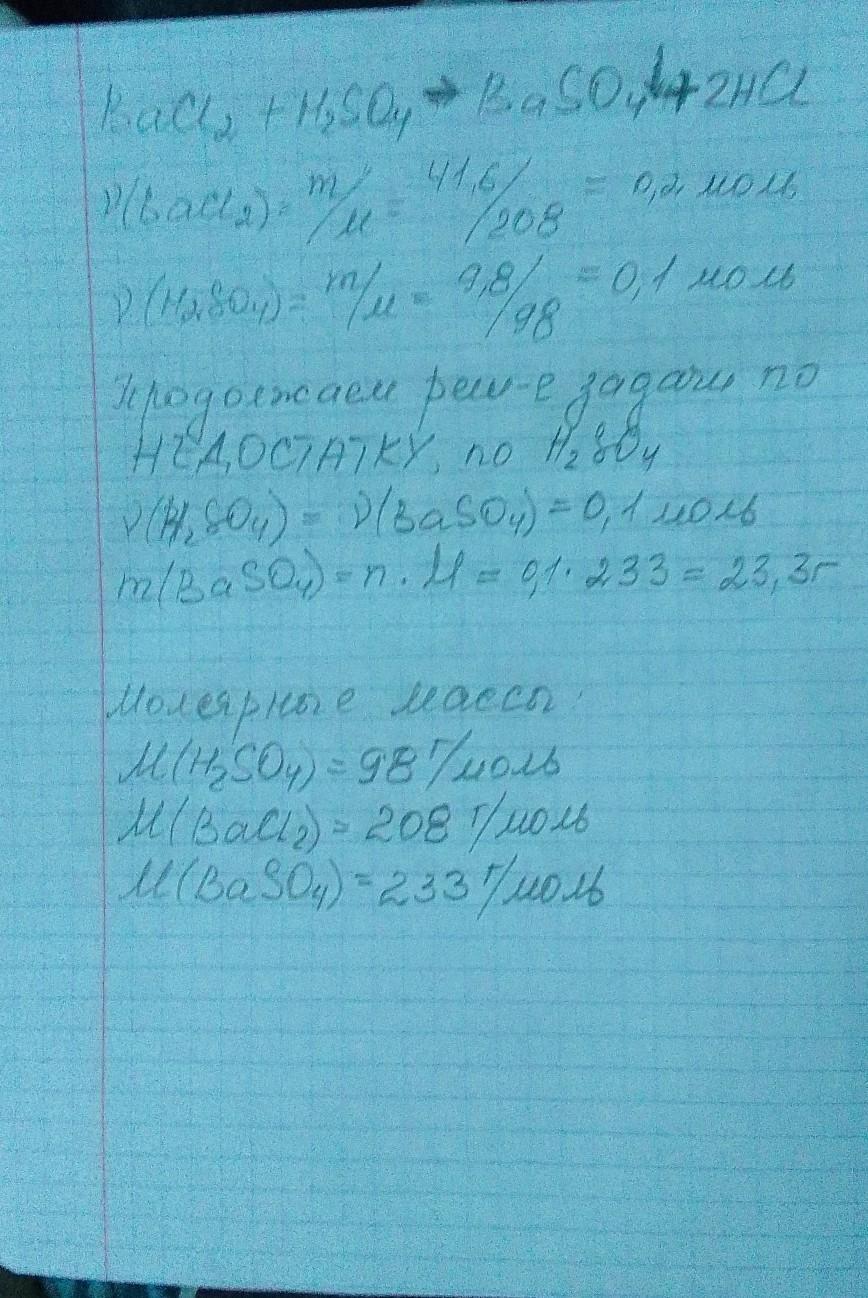 BaCl₂ + H₂SO₄ → BaSO₄↓ + 2HCl
ν(BaCl₂) = m/M = 41,6/208 = 0,2 моль
ν(H₂SO₄) = m/M = 9,8/98 = 0,1 моль
Продолжаем реш-е задачи по
НЕДОСТАТКУ, по H₂SO₄
ν(H₂SO₄) = ν(BaSO₄) = 0,1 моль
m(BaSO₄) = n · M = 0,1 · 233 = 23,3г
Молярные массы:
M(H₂SO₄) = 98 г/моль
M(BaCl₂) = 208 г/моль
M(BaSO₄) = 233 г/моль